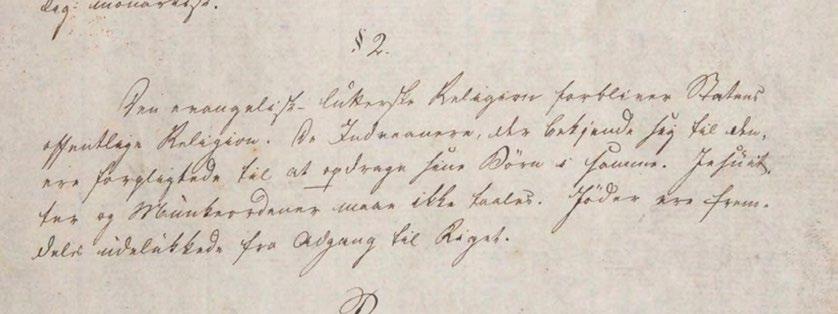 dig-monarkisk.
§ 2.
Den evangelisk-lutherske Religion forbliver Statens
offentlige Religion. De Indvaanere, der bekjende sig til den,
ere forpligtede til at opdrage sine Børn i samme. Jesuit-
ter og Munkeordener maae ikke taales. Jøder ere frem-
deles udelukkede fra Adgang til Riget.